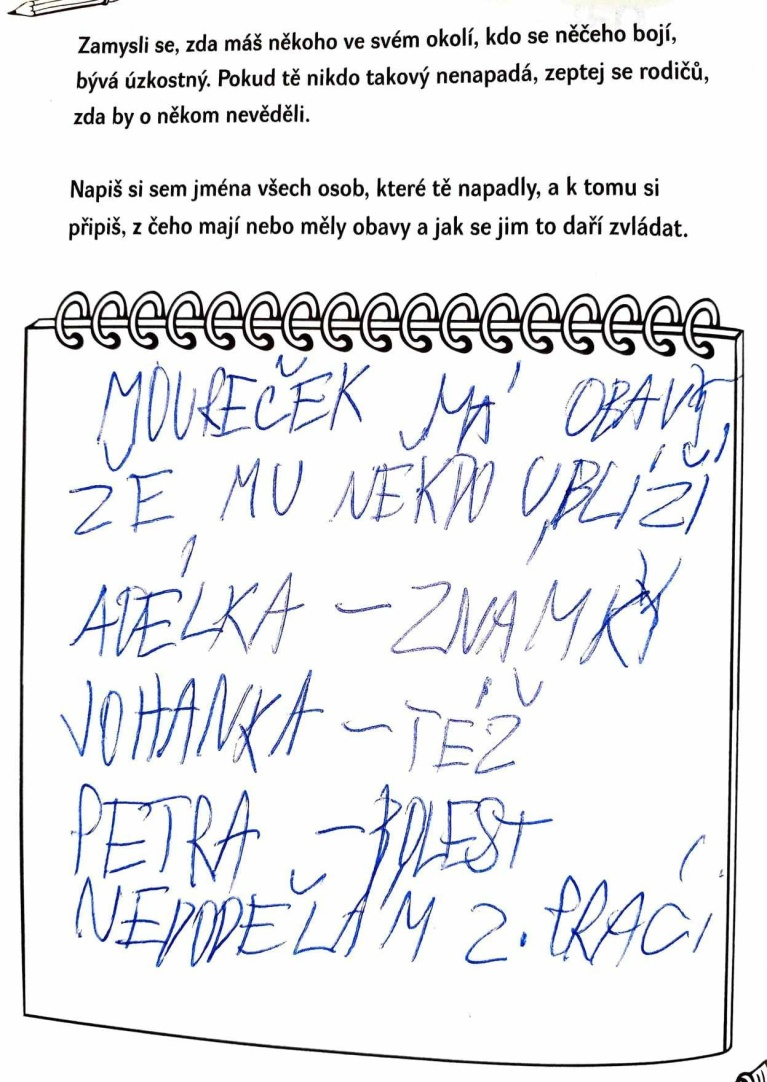 Zamysli se, zda máš někoho ve svém okolí, kdo se něčeho bojí,
bývá úzkostný. Pokud tě nikdo takový nenapadá, zeptej se rodičů,
zda by o někom nevěděli.
Napiš si sem jména všech osob, které tě napadly, a k tomu si
připiš, z čeho mají nebo měly obavy a jak se jim to daří zvládat.
MOUREČEK MÁ OBAVY,
ŽE MU NĚKDO UBLÍŽÍ
ADÉLKA – ZNÁMKY
JOHANKA – TÉŽ
PETRA – BOLEST
NEDODĚLÁM 2. PRACÍ